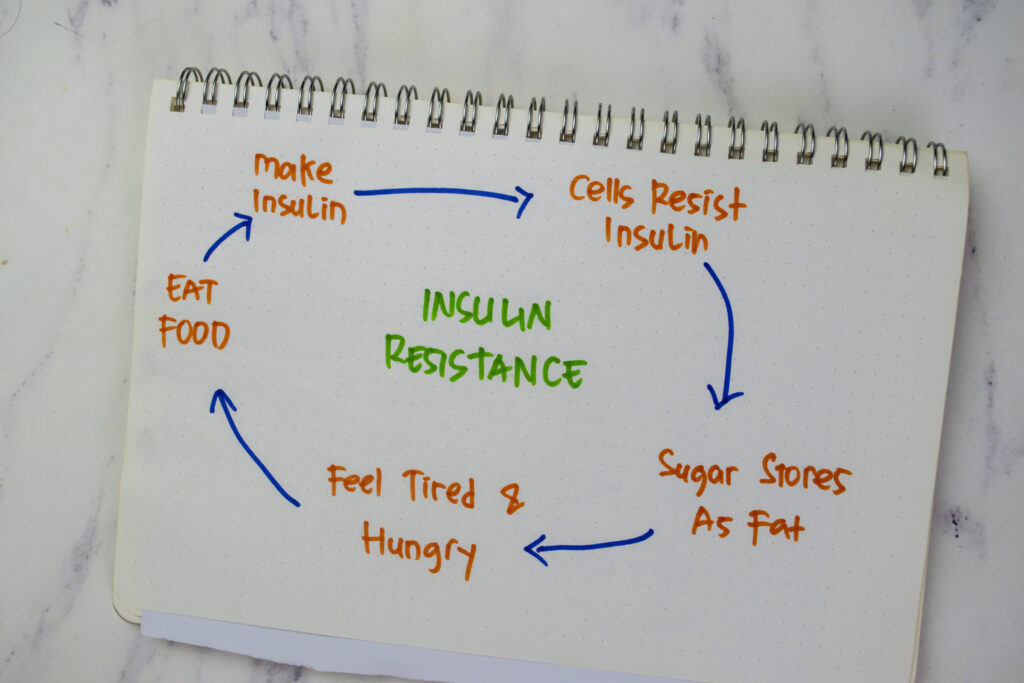 make
Insulin
Cells Resist
Insulin
EAT
FOOD
INSULIN
RESISTANCE
Sugar Stores
As Fat
Feel Tired &
Hungry